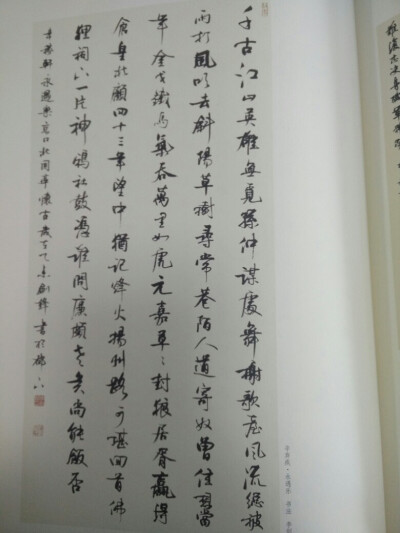 千古江山英雄無覓孫仲謀處舞榭歌臺風流總被
雨打風吹去斜陽草樹尋常巷陌人道寄奴曾住想當
年金戈鐵馬氣吞萬里如虎元嘉草〻封狼居胥贏得
倉皇北顧四十三年望中猶記烽火揚州路可堪回首佛
狸祠下一片神鴉社鼓憑誰問廉頗老矣尚能飯否
辛稼軒永遇樂京口北固亭懷古 書於
辛弃疾·永遇乐 书法